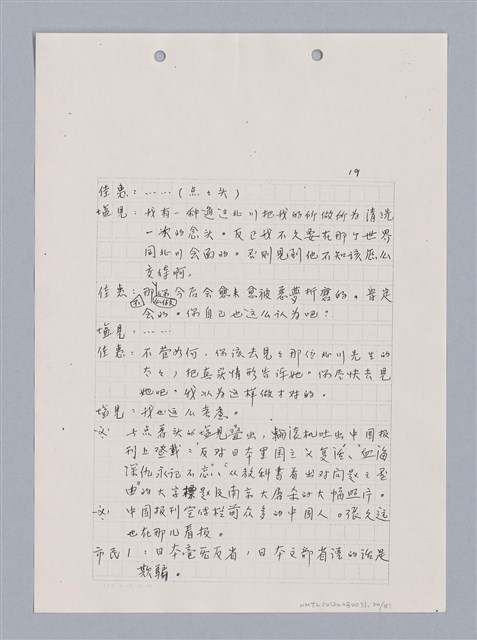 19
佳惠：……（点々头）
塩見：我有一种通过北川把我的所做所为清洗
一次的念头。反正我不久要在那个世界
同北川会面的。否则见到他不知该怎么
交待啊。
佳惠：那你今后会愈来愈被恶夢折磨的。肯定
会的。你自己也这么认为吧？
塩見：……
佳惠：不管如何，你该去见々那位北川先生的
太々，把真实情形告诉她。你尽快去见
她吧。我认为这样做才对的。
塩見：我也这么考虑。
与点着头的塩见叠出，轮流地吐出中国报
刊上登载：“反对日本军国主义复活”、“血海
深仇永记不忘”、“从教科书看出对问题之歪
曲”的大字標题及南京大屠杀的大幅照片。
中国报刊宣传栏前众多的中国人。張久远
也在那儿看报。
市民1：日本毫无反省，日本文部省谨的话是
欺騙。